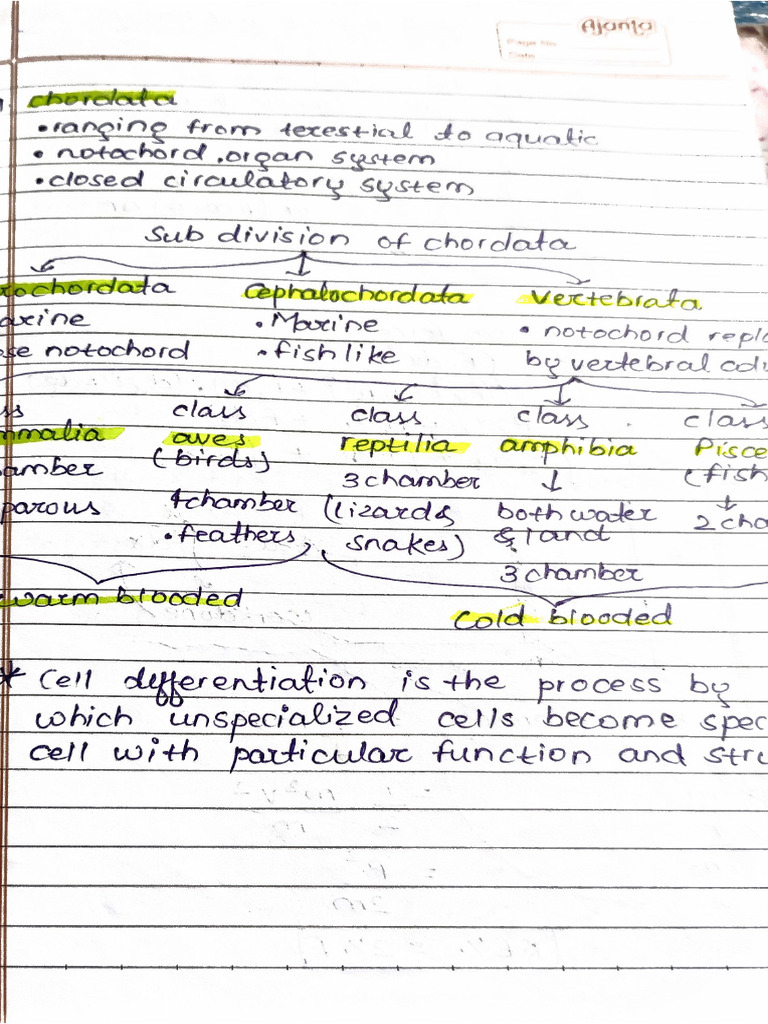 Ajanta
Page No
Date
chordata
• ranging from terestial to aquatic
• notochord, organ system
• closed circulatory system
Sub division of chordata
rochordata Cephalochordata Vertebrata
arine • Marine • notochord repla
se notochord • fish like by vertebral colu
ss class class class class
mmalia aves reptilia amphibia Pisce
amber (birds) 3 chamber ↓ (fish
parous 4 chamber (lizards both water 2 cha
• feathers snakes) & land
3 chamber
warm blooded
Cold blooded
* Cell differentiation is the process by
which unspecialized cells become spec
cell with particular function and stru